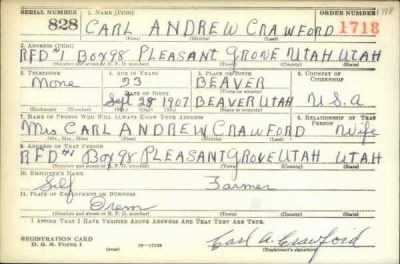 SERIAL NUMBER 1. NAME (Print) ORDER NUMBER
828 CARL ANDREW CRAWFORD 1718 1718
(First) (Middle) (Last)
2. ADDRESS (Print)
RFD#1 BOX 98 PLEASANT GROVE UTAH UTAH
(Number and street or R. F. D. number) (Town) (County) (State)
3. TELEPHONE 4. AGE IN YEARS 5. PLACE OF BIRTH 6. COUNTRY OF CITIZENSHIP
None 33 BEAVER
DATE OF BIRTH (Town or county)
Sept 28 1907 BEAVER UTAH U.S.A
(Exchange) (Number) (Mo.) (Day) (Yr.) (State or country)
7. NAME OF PERSON WHO WILL ALWAYS KNOW YOUR ADDRESS 8. RELATIONSHIP OF THAT PERSON
Mrs CARL ANDREW CRAWFORD Wife
(Mr., Mrs., Miss) (First) (Middle) (Last)
9. ADDRESS OF THAT PERSON
RFD#1 BOX 98 PLEASANT GROVE UTAH UTAH
(Number and street or R. F. D. number) (Town) (County) (State)
10. EMPLOYER'S NAME
Self Farmer
11. PLACE OF EMPLOYMENT OR BUSINESS
Orem
(Number and street or R. F. D. number) (Town) (County) (State)
I AFFIRM THAT I HAVE VERIFIED ABOVE ANSWERS AND THAT THEY ARE TRUE.
REGISTRATION CARD
D. S. S. Form 1 16-17105 Carl A. Crawford
(Registrant's signature)